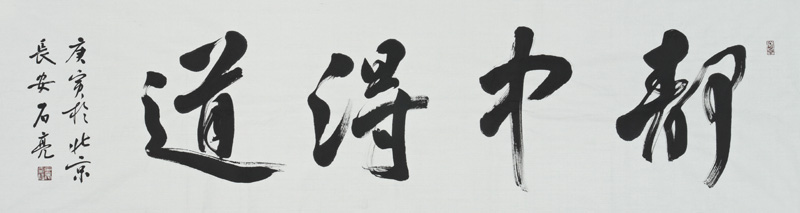 靜中得道
庚寅於北京
長安石亮